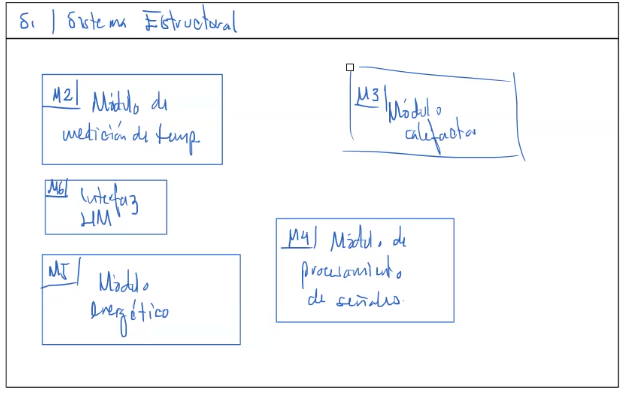 S1 | Sistema Estructural
M2 | Módulo de
medición de temp
M3 | Módulo
calefactor
M6 | Interfaz
HM
M4 | Módulo de
procesamiento
de señales.
M5 | Módulo
energético